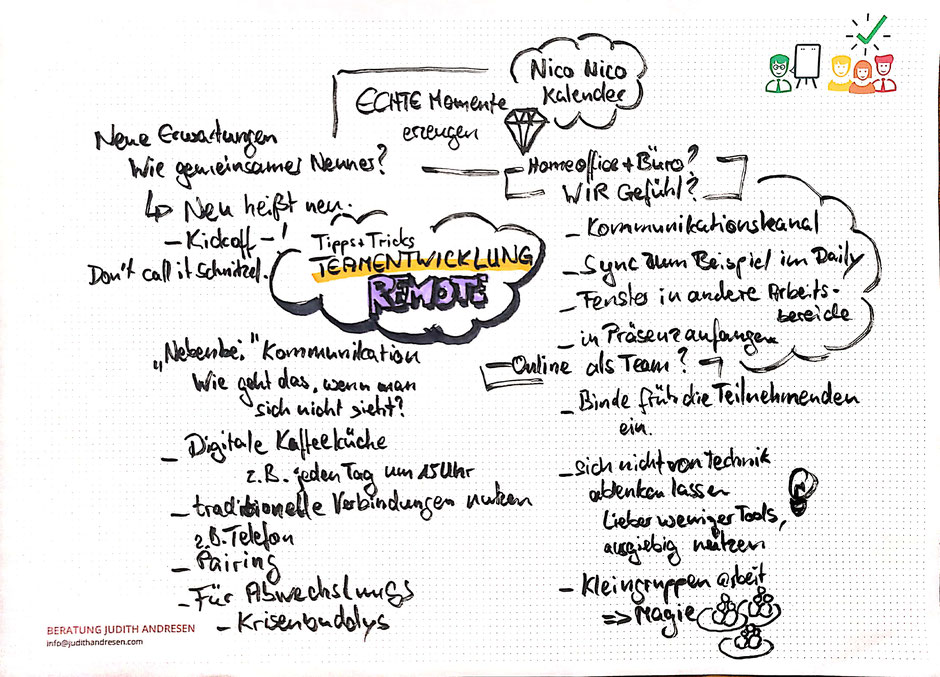 Nico Nico
Kalender
ECHTE Momente
erzeugen
Neue Erwartungen
Wie gemeinsamer Nenner?
↳ Neu heißt neu.
– Kickoff – !
Don't call it Schnitzel.
Tipps + Tricks
TEAMENTWICKLUNG
REMOTE
Homeoffice + Büro?
WIR Gefühl?
– Kommunikationskanal
– Sync zum Beispiel im Daily
– Fenster in andere Arbeits-
bereiche
– in Präsenz anfangen
„Nebenbei" Kommunikation
Wie geht das, wenn man
sich nicht sieht?
– Digitale Kaffeeküche
z.B. jeden Tag um 15 Uhr
– traditionelle Verbindungen nutzen
z.B. Telefon
– Pairing
– Für Abwechslungs
– Krisenbuddys
Online als Team?
– Binde früh die Teilnehmenden
ein.
– sich nicht von Technik
ablenken lassen
Lieber weniger Tools,
ausgiebig nutzen
– Kleingruppen arbeit
=> Magie
BERATUNG JUDITH ANDRESEN
info@judithandresen.com